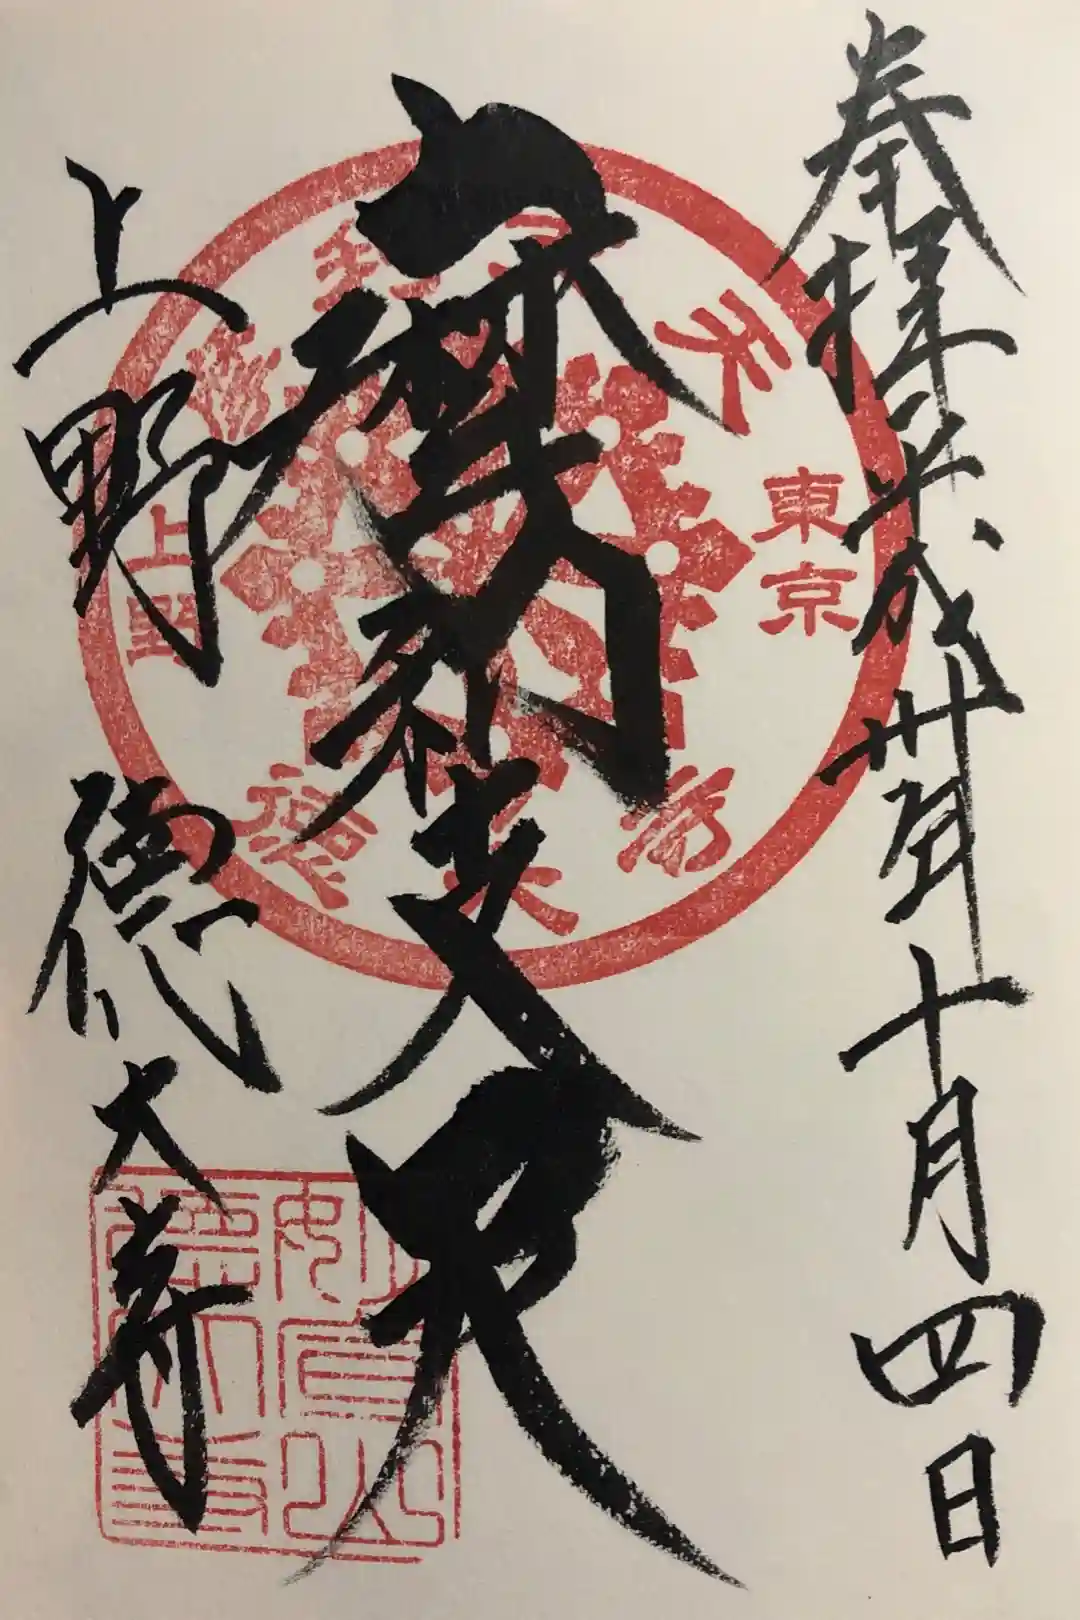 奉拝 平成卅年十月四日
摩利支天
上野 徳大寺
摩利支天
東京
上野
徳大寺
妙宣山
徳大寺